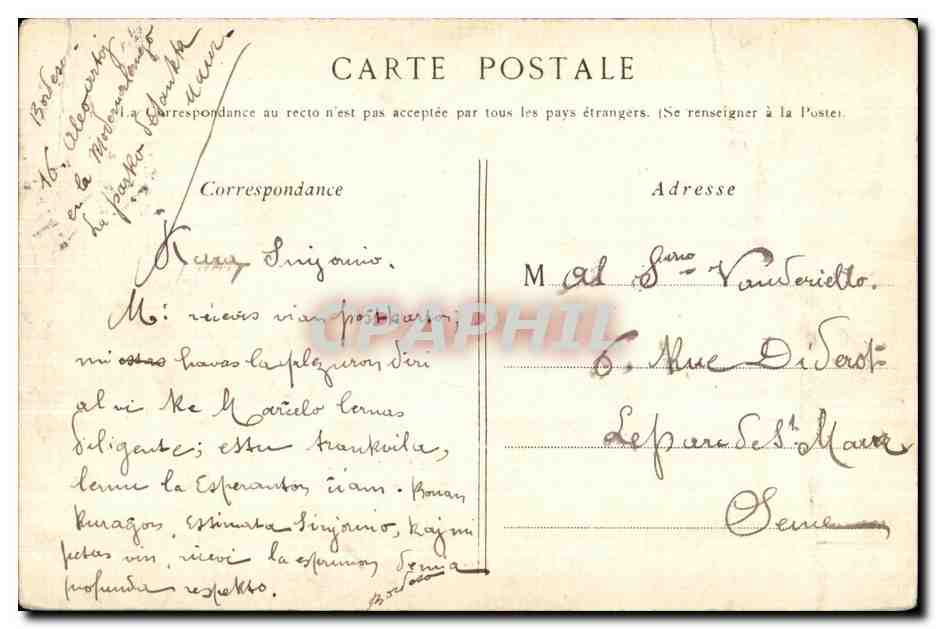 Bordeso
16. Aleo artoj
en la Modernalingo
La parko de Sankta
Maur.
CARTE POSTALE
La Correspondance au recto n'est pas acceptée par tous les pays étrangers. (Se renseigner à la Poste).
Correspondance
Kara Sinjorino.
Mi ricevis vian postkarton;
mi havas la plezuron diri
al vi ke Marcelo lernas
diligente; estu trankvila,
lernu la Esperanton ĉiam. Bonan
kuragon, Estimata Sinjorino, kaj mi
petas vin, ricevi la esprimon de mia
profunda respekto.
Bordoso
Adresse
M al Sino Vanderietto.
6, Rue Diderot
Le parc de St. Maur
Seine
CPAPHIL